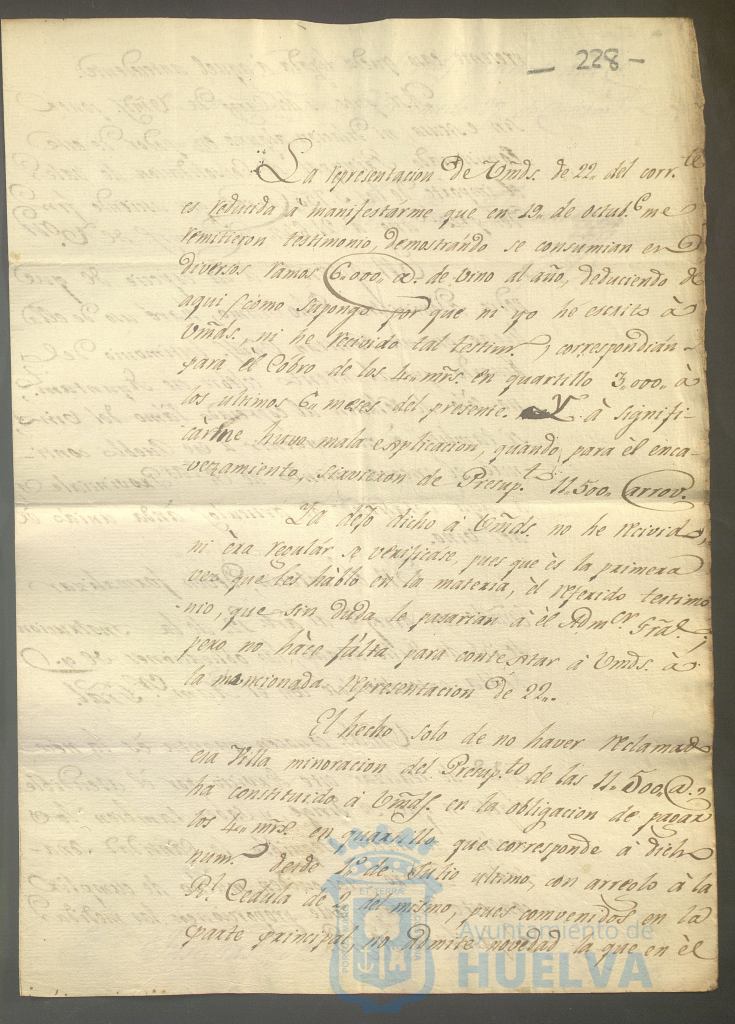 — 228 —
La representacion de Vmds. de 22,, del corr.te
es reducida à manifestarme que en 19,, de Octub.e me
remitieron testimonio, demostrando se consumian en
diversos ramos 6,,000,, @. de vino al año, deduciendo de
aqui (como supongo, por que ni yo he escrito à
Vmds., ni he recivido tal testim.o) correspondian
para el Cobro de los 4,, mrs. en quartillo 3,,000,, à
los ultimos 6,, meses del presente. Y à signifi-
carme huvo mala explicacion, quando para èl enca-
vezamiento, sirvieron de Presup.to 11,,500,, arrov.s
Ya dejo dicho à Vmds. no he recivido,
ni èra regulàr se verificase, pues que ès la primera
vez que les hablo en la materia, èl referido testimo-
nio, que sin duda le pasarian à èl Adm.or Gral.;
pero no hàce fàlta para contestar à Vmds. à
la mencionada representacion de 22,,
El hecho solo de no haver reclamado
esa Villa minoracion del Presup.to de las 11,,500,, @.s
ha constituido à Vmds. en la obligacion de pagar
los 4,, mrs. en quartillo que corresponde à dicho
num.o desde 1.o de Julio ultimo, con arreglo à la
R.l Cedula de 2 del mismo, pues convenidos en la
parte principal, no admite novedad la que en èl
Ayuntamiento de
HUELVA